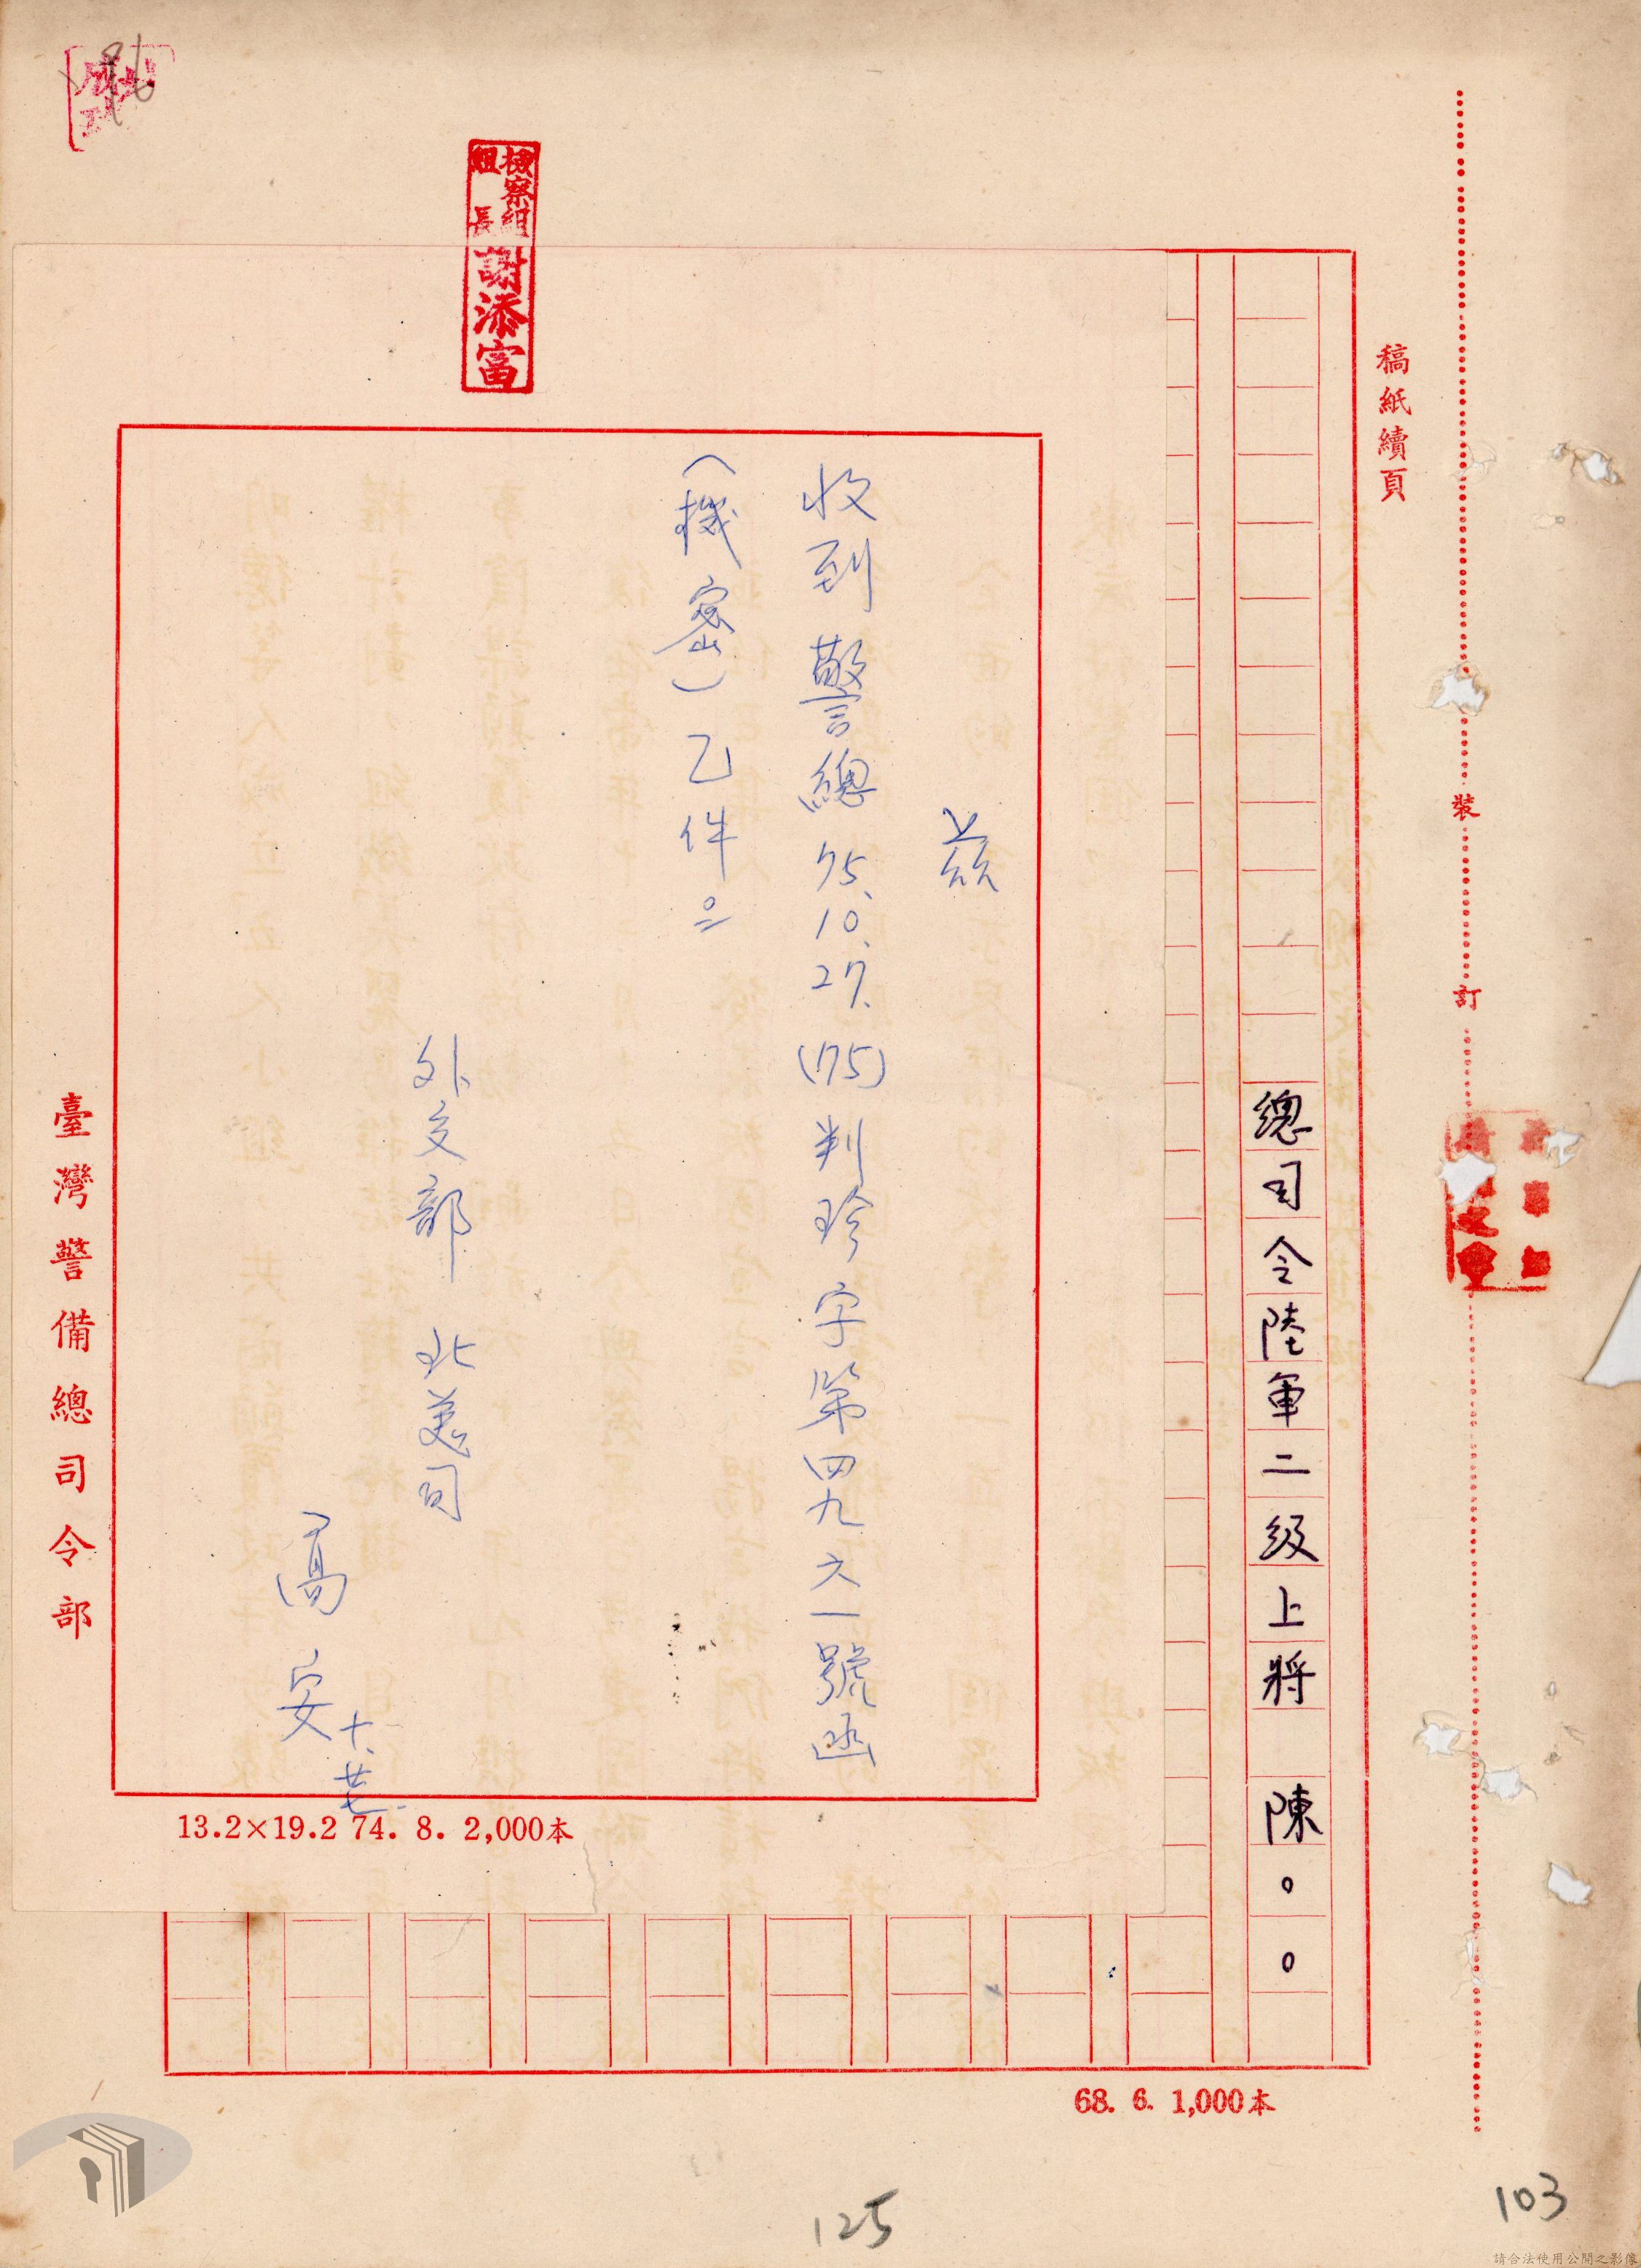 稿紙續頁
裝
訂
總司令陸軍二級上將 陳○○
檢察組
組長
謝添富
茲
收到警總75.10.27.(75)判珍字第四九六一號函
(機密)乙件。
外交部 北美司
高 安
十.廿七.
臺灣警備總司令部
13.2×19.2 74. 8. 2,000本
68. 6. 1,000本
125
103
請合法使用公開之影像